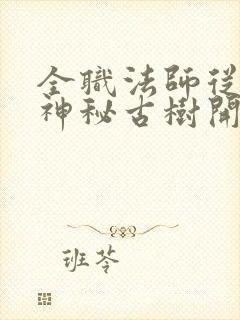 全職法師從
神秘古樹開
班苓